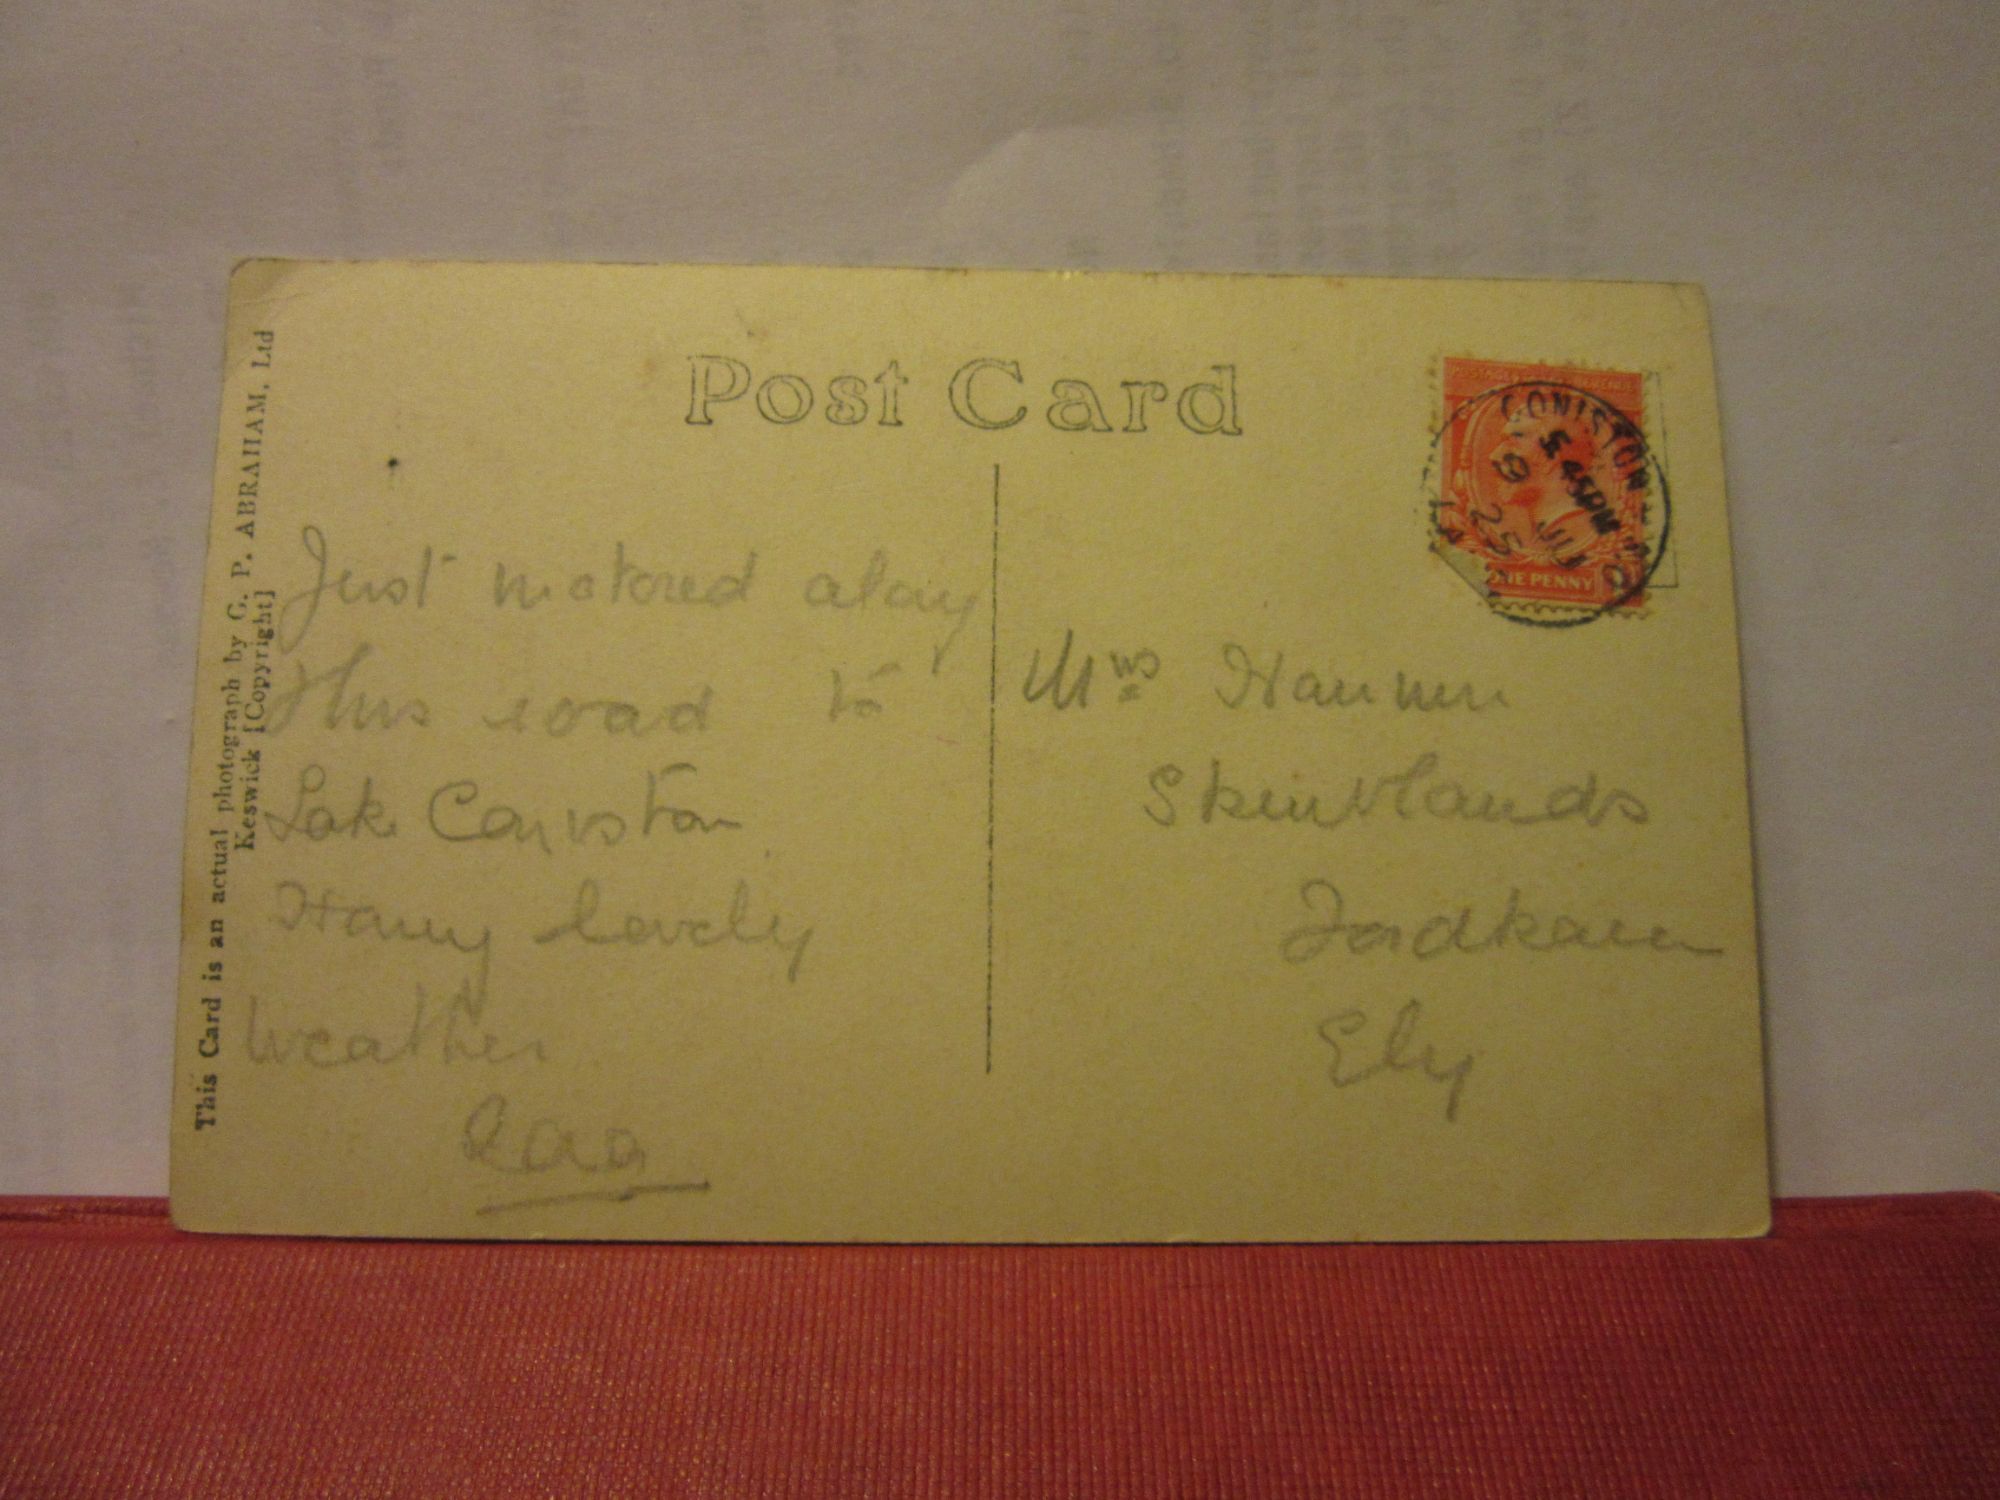 Post Card
This Card is an actual photograph by G. P. ABRAHAM, Ltd
Keswick [Copyright]
Just motored along
this road to
Lake Coniston
Having lovely
weather
CONISTON
5.45PM
9 JU
25
ONE PENNY
Mrs
Fordham
Ely